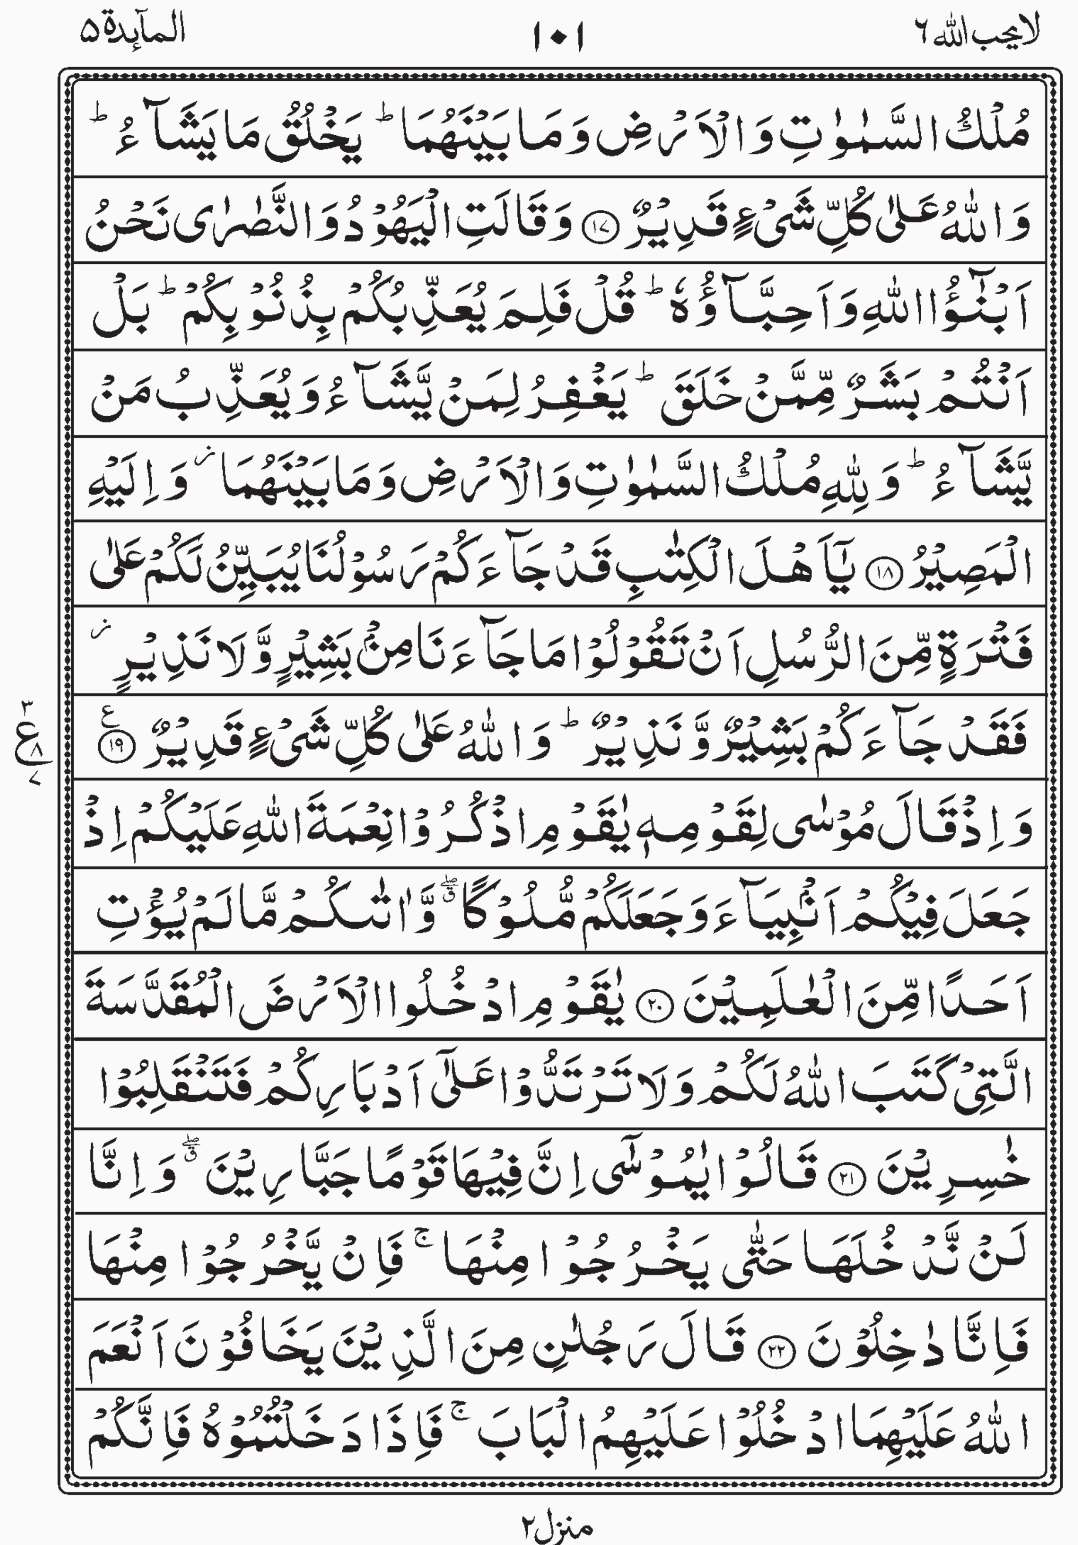 لا یحب الله ٦
١٠١
المآىِٕدة ٥
مُلْكُ السَّمٰوٰتِ وَالْاَرْضِ وَمَا بَيْنَهُمَا ؕ يَخْلُقُ مَا يَشَآءُ ؕ
وَاللّٰهُ عَلٰى كُلِّ شَىْءٍ قَدِيْرٌ ۝١٧ وَقَالَتِ الْيَهُوْدُ وَالنَّصٰرٰى نَحْنُ
اَبْنٰٓؤُا اللّٰهِ وَاَحِبَّآؤُهٗ ؕ قُلْ فَلِمَ يُعَذِّبُكُمْ بِذُنُوْبِكُمْ ؕ بَلْ
اَنْتُمْ بَشَرٌ مِّمَّنْ خَلَقَ ؕ يَغْفِرُ لِمَنْ يَّشَآءُ وَيُعَذِّبُ مَنْ
يَّشَآءُ ؕ وَلِلّٰهِ مُلْكُ السَّمٰوٰتِ وَالْاَرْضِ وَمَا بَيْنَهُمَا ز وَاِلَيْهِ
الْمَصِيْرُ ۝١٨ يٰۤاَهْلَ الْكِتٰبِ قَدْ جَآءَكُمْ رَسُوْلُنَا يُبَيِّنُ لَكُمْ عَلٰى
فَتْرَةٍ مِّنَ الرُّسُلِ اَنْ تَقُوْلُوْا مَا جَآءَنَا مِنْۢ بَشِيْرٍ وَّلَا نَذِيْرٍ ز
فَقَدْ جَآءَكُمْ بَشِيْرٌ وَّنَذِيْرٌ ؕ وَاللّٰهُ عَلٰى كُلِّ شَىْءٍ قَدِيْرٌ ۝١٩ ع
٣
ع ٨
٧
وَاِذْ قَالَ مُوْسٰى لِقَوْمِهٖ يٰقَوْمِ اذْكُرُوْا نِعْمَةَ اللّٰهِ عَلَيْكُمْ اِذْ
جَعَلَ فِيْكُمْ اَنْۢبِيَآءَ وَجَعَلَكُمْ مُّلُوْكًا ۖق وَّاٰتٰىكُمْ مَّا لَمْ يُؤْتِ
اَحَدًا مِّنَ الْعٰلَمِيْنَ ۝٢٠ يٰقَوْمِ ادْخُلُوا الْاَرْضَ الْمُقَدَّسَةَ
الَّتِىْ كَتَبَ اللّٰهُ لَكُمْ وَلَا تَرْتَدُّوْا عَلٰٓى اَدْبَارِكُمْ فَتَنْقَلِبُوْا
خٰسِرِيْنَ ۝٢١ قَالُوْا يٰمُوْسٰٓى اِنَّ فِيْهَا قَوْمًا جَبَّارِيْنَ ۖق وَاِنَّا
لَنْ نَّدْخُلَهَا حَتّٰى يَخْرُجُوْا مِنْهَا ۚ فَاِنْ يَّخْرُجُوْا مِنْهَا
فَاِنَّا دٰخِلُوْنَ ۝٢٢ قَالَ رَجُلٰنِ مِنَ الَّذِيْنَ يَخَافُوْنَ اَنْعَمَ
اللّٰهُ عَلَيْهِمَا ادْخُلُوْا عَلَيْهِمُ الْبَابَ ۚ فَاِذَا دَخَلْتُمُوْهُ فَاِنَّكُمْ
منزل ٢